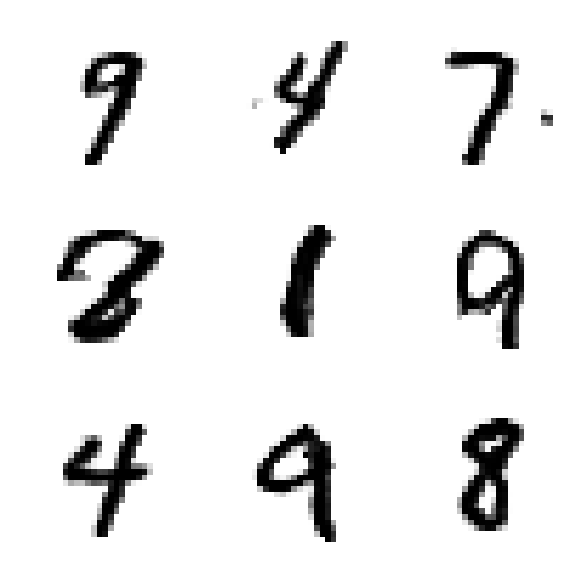 9 4 7
8 1 9
4 9 8